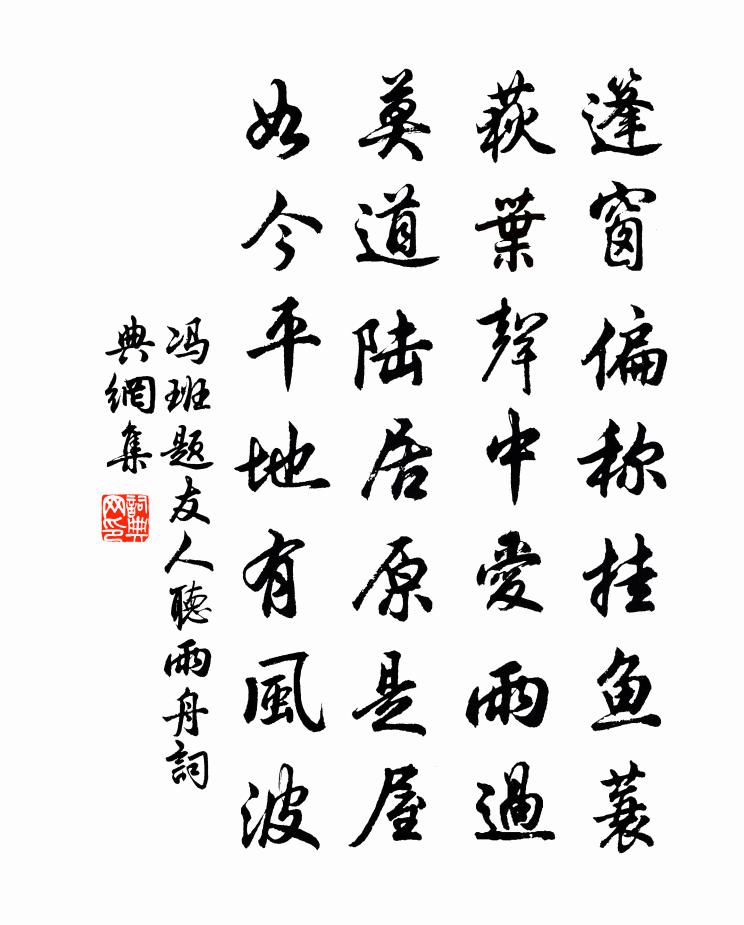 篷窗偏称挂鱼蓑
荻葉聲中愛雨過
莫道陆居原是屋
如今平地有風波
冯班题友人聽雨舟詞
典網集
詞典
网印